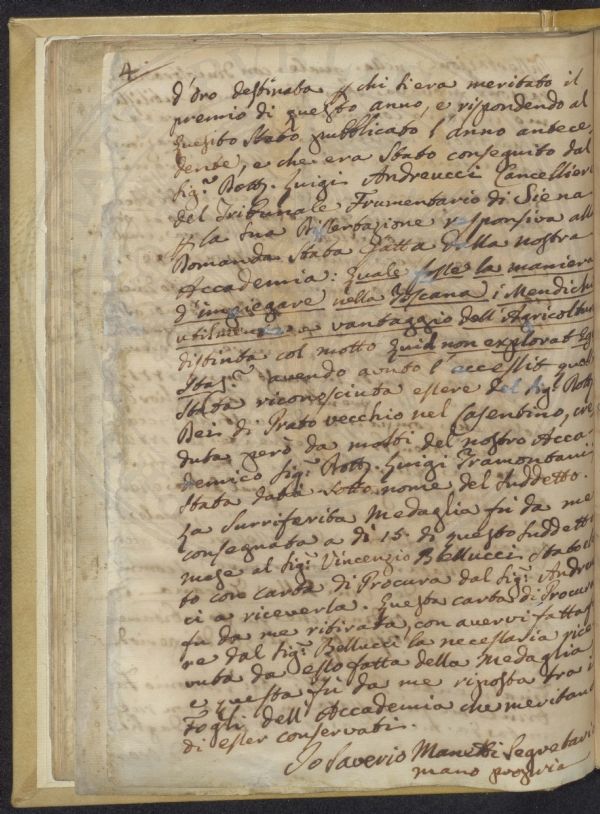 4.
d'oro destinata p chi si era meritato il
premio di questo anno, e rispondendo al
Quesito stato pubblicato l'anno antece,
dente, e che era stato conseguito dal
Sig.r Dott. Luigi Andreucci Cancellier
del Tribunale Frumentario di Siena
p la sua Dissertazione responsiva alla
Domanda stata fatta dalla nostra
Accademia: quale fosse la maniera
d'impiegare nella Toscana i Mendichi
utilmente a vantaggio dell'Agricoltura
distinta col motto Quid non explorat
avendo avuto l'accessit quella
stata riconosciuta essere del Sig.r Dott.
Beni di Prato vecchio nel Casentino, cre
duta però da molti del nostro Acca,
demico Sig.r Dott. Luigi Tramontani
stata data sotto nome del suddetto.
La surriferita Medaglia fù da me
consegnata a dì 15. di questo suddetto
mese al Sig.r Vincenzio Bellucci stato
to con carta di Procura dal Sig.r Andreu
ci a riceverla. Questa carta di Procura
fù da me ritirata, con avervi fatta
re dal Sig.r Bellucci la necessaria rice
vuta da esso fatta della Medaglia,
e questa fù da me riposta tra i
Fogli dell'Accademia che meritano
di esser conservati.
Io Saverio Manetti Segretario
mano propria